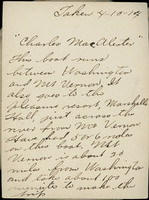 Taken 4-10-19
"Charles MacAlester"
This boat runs
between Washington
and Mt Vernon, It
also goes to the
pleasure resort, Marshall
Hall, just across the
river from Mt Vernon
Have had 5 or 6 rides
on this boat. Mt
Vernon is about 20
miles from Washington
and takes about 90
minutes to make the
trip